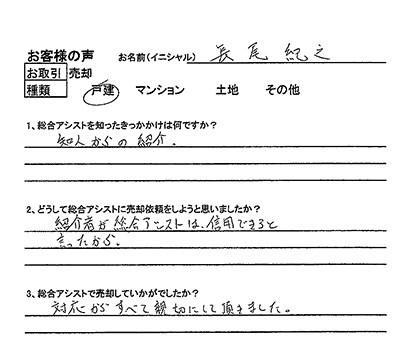 お客様の声 お名前(イニシャル) 長尾紀之
お取引 売却
種類 戸建 マンション 土地 その他
1、総合アシストを知ったきっかけは何ですか?
知人からの紹介。
2、どうして総合アシストに売却依頼をしようと思いましたか?
紹介者が総合アシストは、信用できると
言ったから。
3、総合アシストで売却していかがでしたか?
対応がすべて親切にして頂きました。